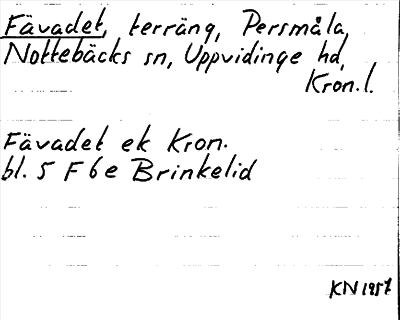 Fävadet, terräng, Persmåla,
Nottebäcks sn, Uppvidinge hd,
Kron. l.
Fävadet ek Kron.
bl. 5 F 6 e Brinkelid
KN 1957